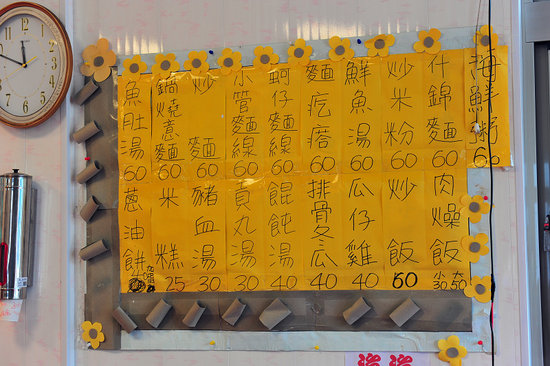 海鮮粥 60
什錦麵 60
炒米粉 60
鮮魚湯 60
麵疙瘩 60
蚵仔麵線 60
小管麵線 60
炒麵 60
鍋燒意麵 60
魚肚湯 60
肉燥飯 大50 小30
炒飯 60
瓜仔雞 40
排骨冬瓜 40
餛飩湯 40
貢丸湯 30
豬血湯 30
米糕 25
蔥油餅